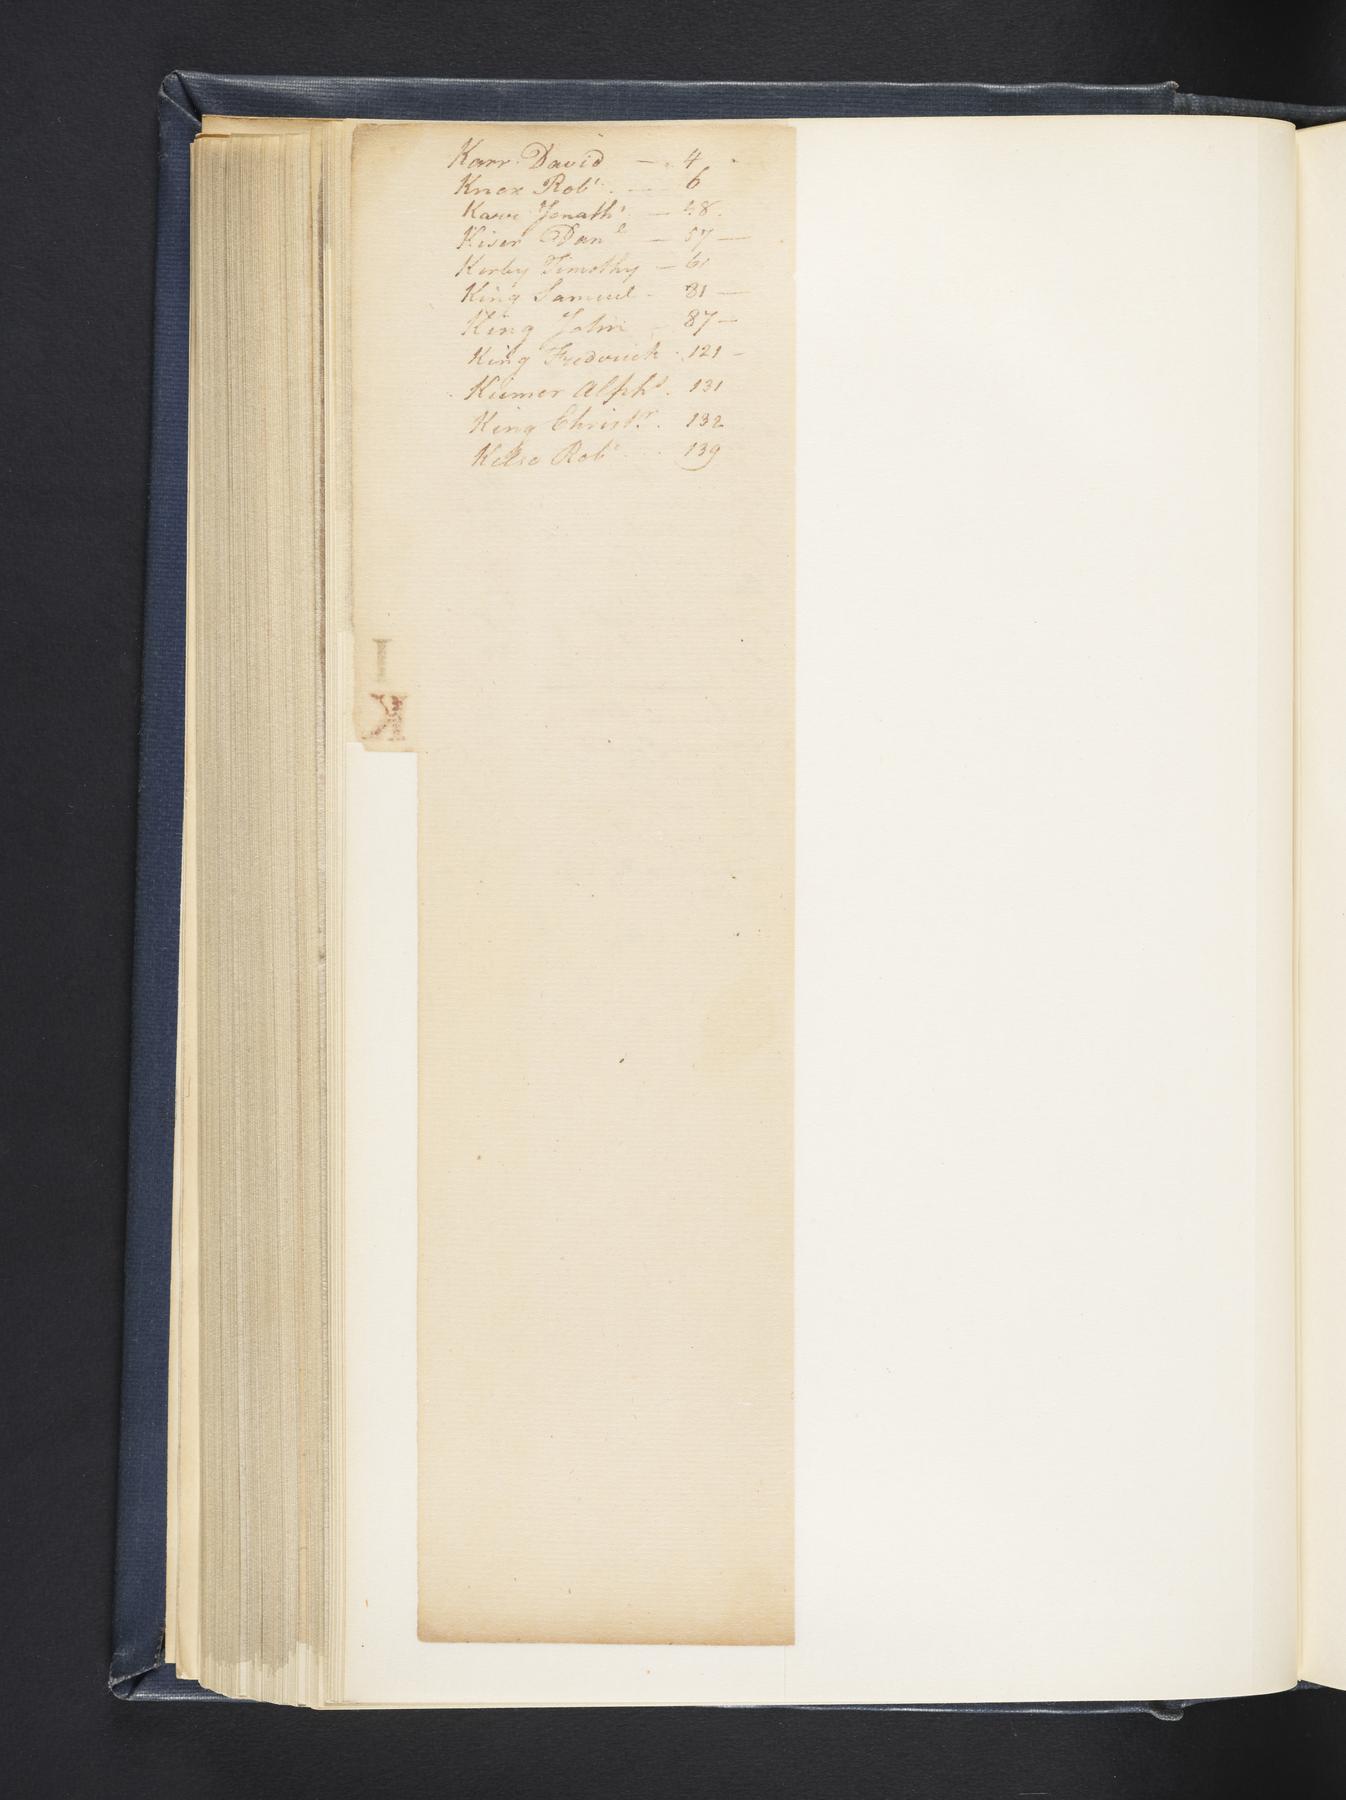 Karr David — 4
Knox Robt. — 6
Karr Jonathn — 48.
Kiser Danl — 57 —
Kirby Timothy — 61
King Samuel - 81 —
King John - 87 —
King Frederick - 121 -
Kumer Alphs. 131
King Christr. 132
Kelso Robt 139
I
K